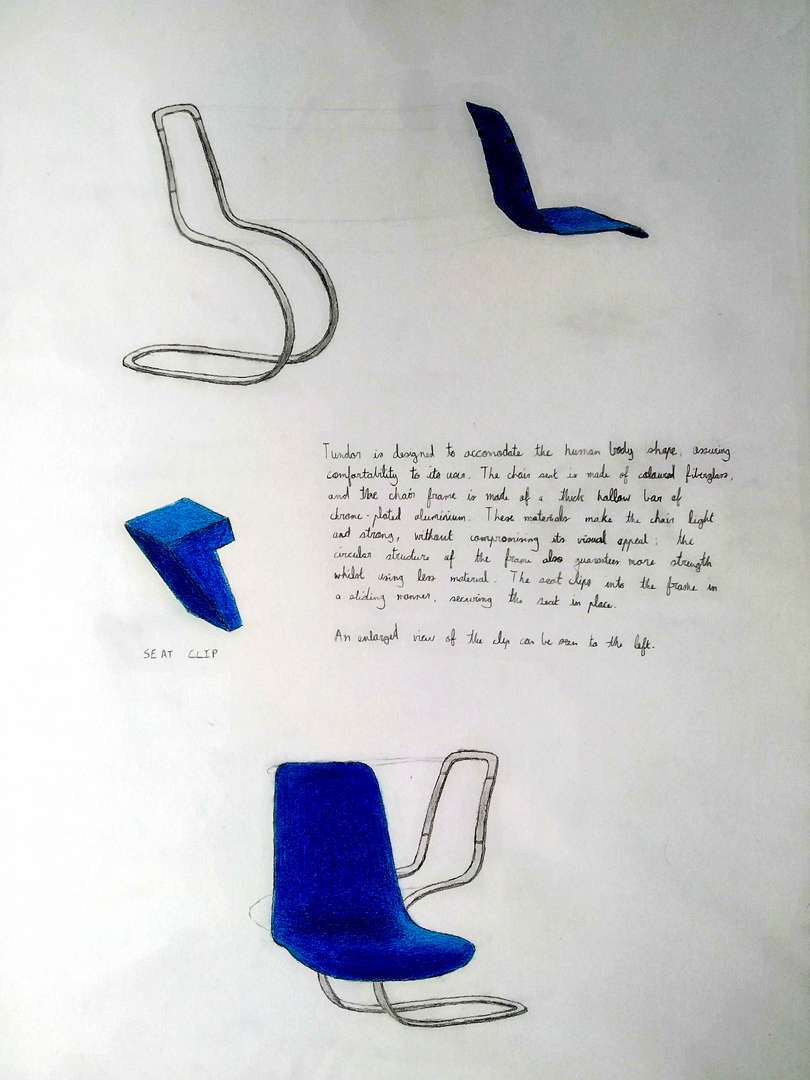 Tundor is designed to accomodate the human body shape, assuring
comfortability to its user. The chair seat is made of coloured fiberglass,
and the chair frame is made of a thick hallow bar of
chrome-plated aluminium. These materials make the chair light
and strong, without compromising its visual appeal; the
circular structure of the frame also guarantees more strength
whilst using less material. The seat clips into the frame in
a sliding manner, securing the seat in place.
An enlarged view of the clip can be seen to the left.
SEAT CLIP